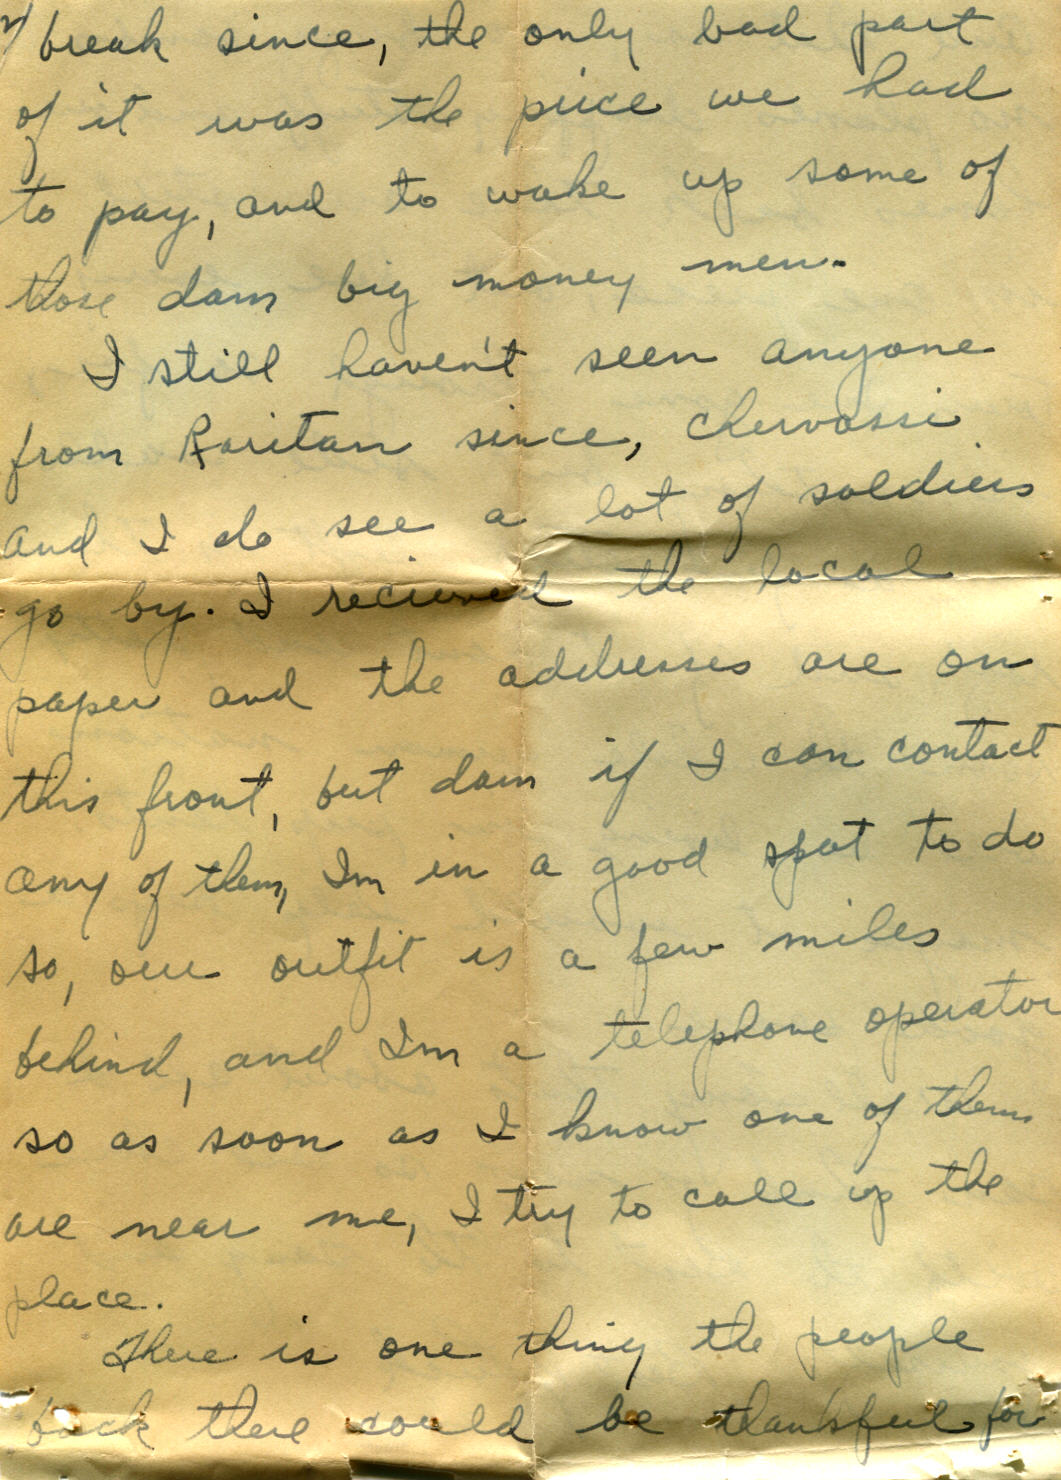 break since, the only bad part
of it was the price we had
to pay, and to wake up some of
those dam big money men.
I still haven't seen anyone
from Raritan since, Chervassi
and I do see a lot of soldiers
go by. I recieved the local
paper and the addresses are on
this front, but dam if I can contact
any of them, Im in a good spot to do
so, our outfit is a few miles
behind, and Im a telephone operator
so as soon as I know one of them
are near me, I try to call up the
place.
There is one thing the people
back there could be thankful for